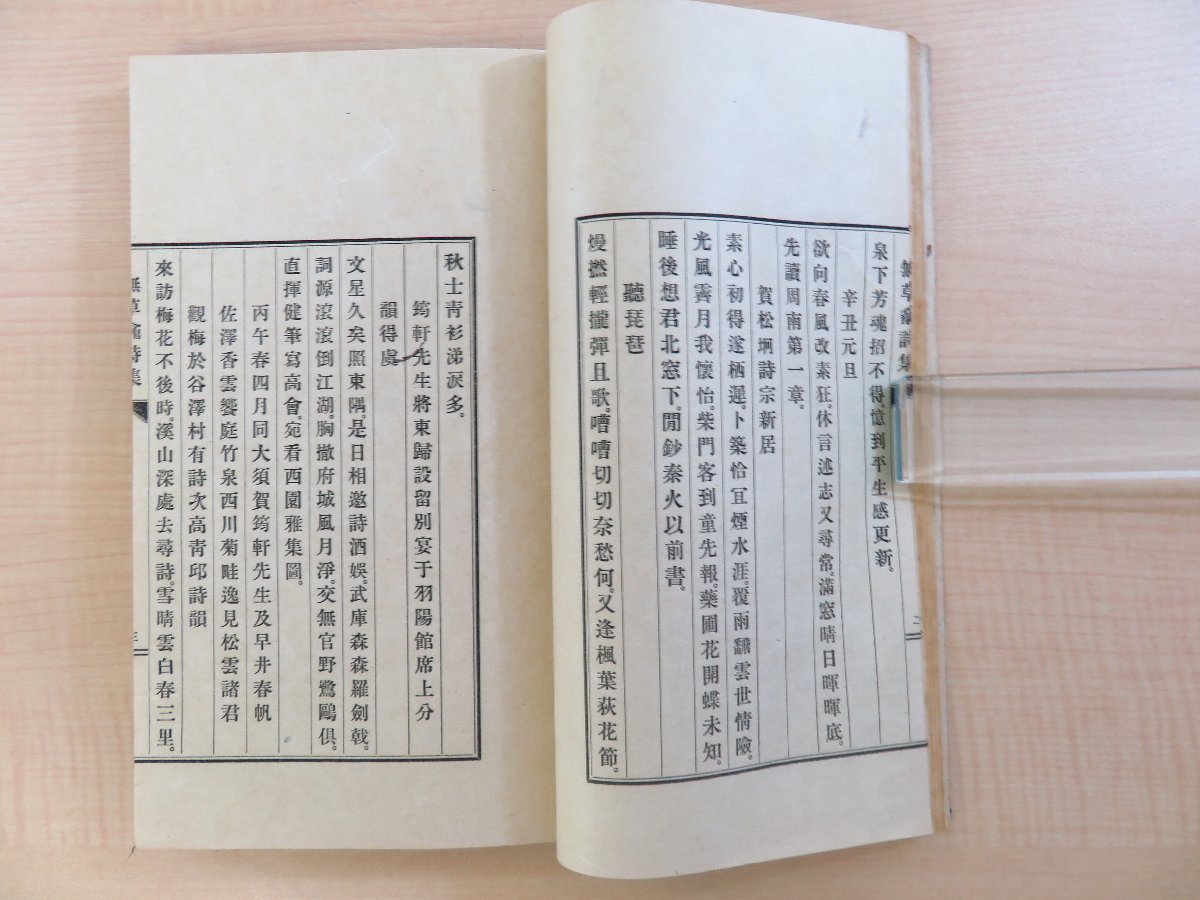 泉下芳魂招不得。憶到平生感更新。
辛丑元旦
欲向春風改素狂。休言述志又尋常。滿窓晴日暉暉底。
先讀周南第一章。
賀松坰詩宗新居
素心初得遂栖遲。卜築恰冝煙水涯。覆雨飜雲世情險。
光風霽月我懷怡。柴門客到童先報。藥圃花開蝶未知。
睡後想君北窓下。閒鈔秦火以前書。
聽琵琶
熳撚輕攏彈且歌。嘈嘈切切奈愁何。又逢楓葉荻花節。
二
秋士靑衫涕淚多。
筠軒先生將東歸設留別宴于羽陽館席上分
韻得虞
文星久矣照東隅。是日相邀詩酒娛。武庫森森羅劍戟。
詞源滾滾倒江湖。胸撤府城風月淨。交無官野鷺鷗俱。
直揮健筆寫高會。宛看西園雅集圖。
丙午春四月同大須賀筠軒先生及早井春帆
佐澤香雲饗庭竹泉西川菊畦逸見松雲諸君
觀梅於谷澤村有詩次高靑邱詩韻
來訪梅花不後時。溪山深處去尋詩。雪晴雲白春三里。
三